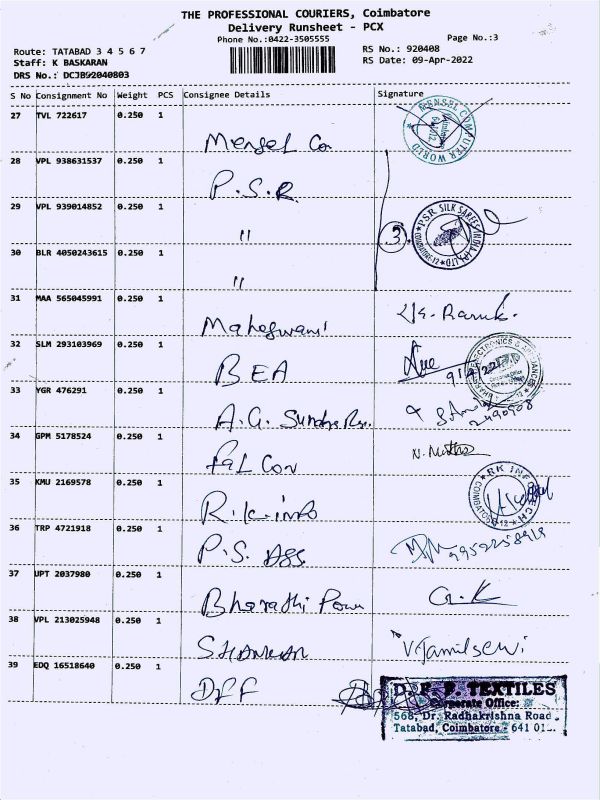 THE PROFESSIONAL COURIERS, Coimbatore
Delivery Runsheet - PCX
Phone No.:0422-3505555
Page No.:3
Route: TATABAD 3 4 5 6 7
RS No.: 920408
Staff: K BASKARAN
RS Date: 09-Apr-2022
DRS No.: DCJB92040803
S No Consignment No Weight PCS Consignee Details Signature
27 TVL 722617 0.250 1
MENSEL COMPUTER WORLD
Mensel Co
28 VPL 938631537 0.250 1
P.S.R
29 VPL 939014852 0.250 1
"
3
P.S.R. SILK SAREES INDIA (P) LTD
COIMBATORE-12
30 BLR 4050243615 0.250 1
"
31 MAA 565045991 0.250 1
Maheswari
32 SLM 293103969 0.250 1
BEA
9/4/22
33 YGR 476291 0.250 1
A.G. Sundra
34 GPM 5178524 0.250 1
Falcon
N. Muthu
35 KMU 2169578 0.250 1
R.K.info
36 TRP 4721918 0.250 1
P.S. Ass
37 UPT 2037980 0.250 1
Bharathi
G.K
38 VPL 213025948 0.250 1
SHANKAR
V.Tamilselvi
39 EDQ 16518640 0.250 1
DFF
TEXTILES
Corporate Office:
568, Dr. Radhakrishna Road
Tatabad, Coimbatore - 641